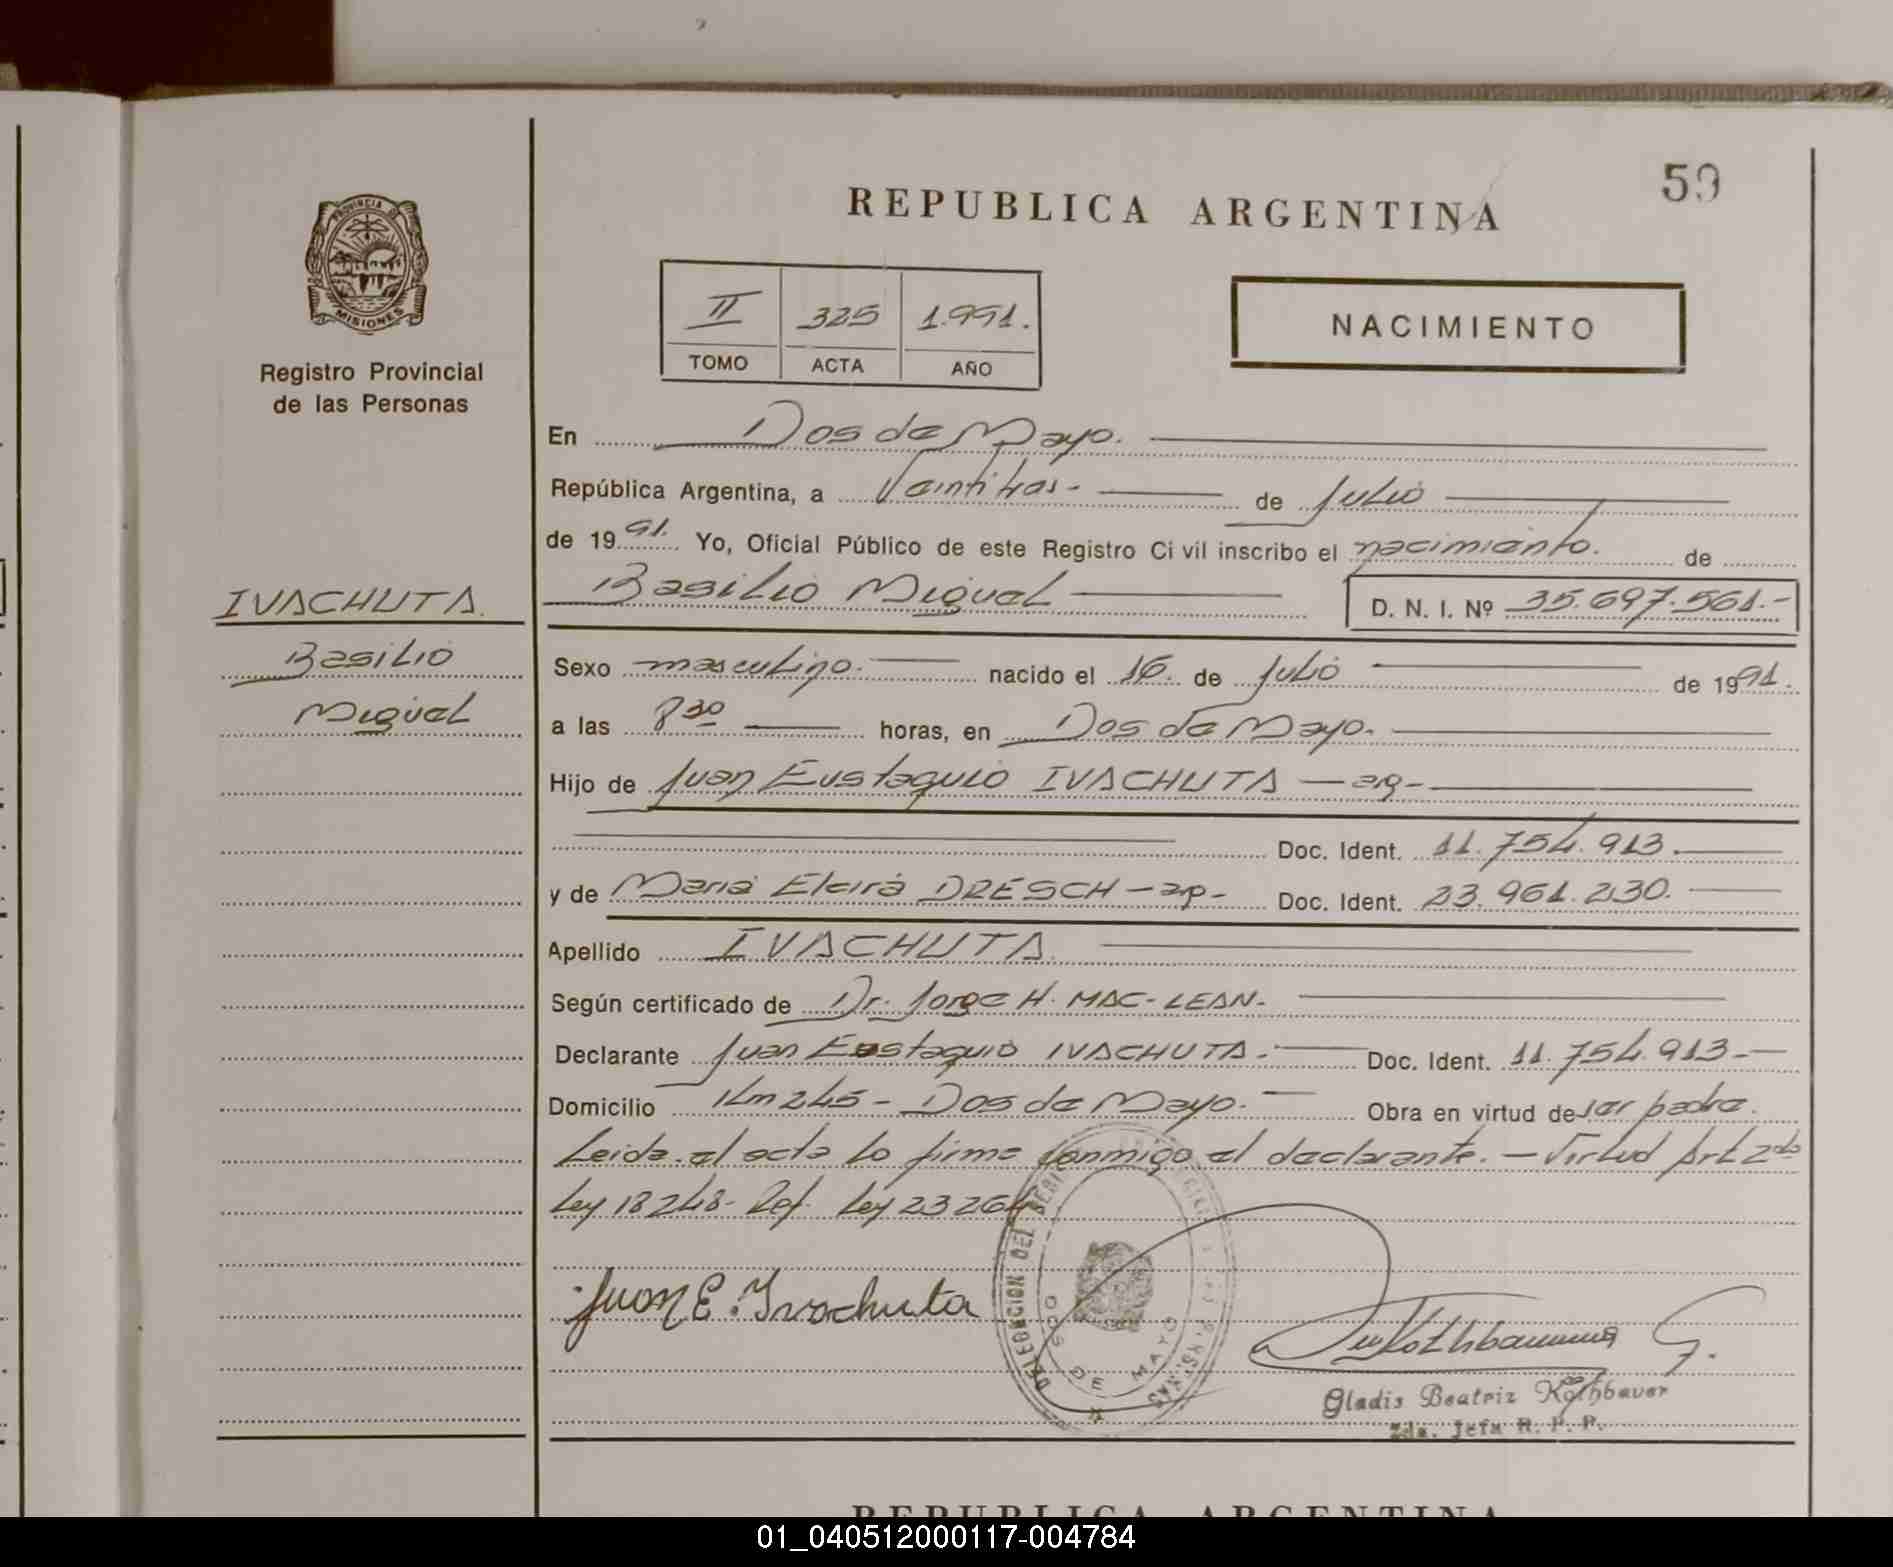 59
REPUBLICA ARGENTINA
PROVINCIA DE
MISIONES
Registro Provincial
de las Personas
II 325 1.991.
TOMO ACTA AÑO
NACIMIENTO
En Dos de Mayo.
República Argentina, a Veintitres- de Julio
de 1991. Yo, Oficial Público de este Registro Ci vil inscribo el nacimiento. de
IVACHUTA.
Basilio
Miguel
Basilio Miguel D. N. I. Nº 35.697.561.-
Sexo masculino. nacido el 16. de Julio de 1991.
a las 8 30 horas, en Dos de Mayo.
Hijo de Juan Eustaquio IVACHUTA — arg-
Doc. Ident. 11.754.913.
y de Maria Elcira DRESCH - arg- Doc. Ident. 23.961.230.
Apellido IVACHUTA.
Según certificado de Dr. Jorge H. MAC-LEAN.
Declarante Juan Eustaquio IVACHUTA.- Doc. Ident. 11.754.913.-
Domicilio Km 245 - Dos de Mayo. Obra en virtud de ser padre.
Leida el acta lo firma conmigo el declarante. - Virtud Art 2do
Ley 18248- Ref. Ley 23264
Juan E. Ivachuta
DELEGACION DEL
DOS DE MAYO
Gladis Beatriz Kothbauer
2da. Jefa R. P. P.
REPUBLICA ARGENTINA
01_040512000117-004784